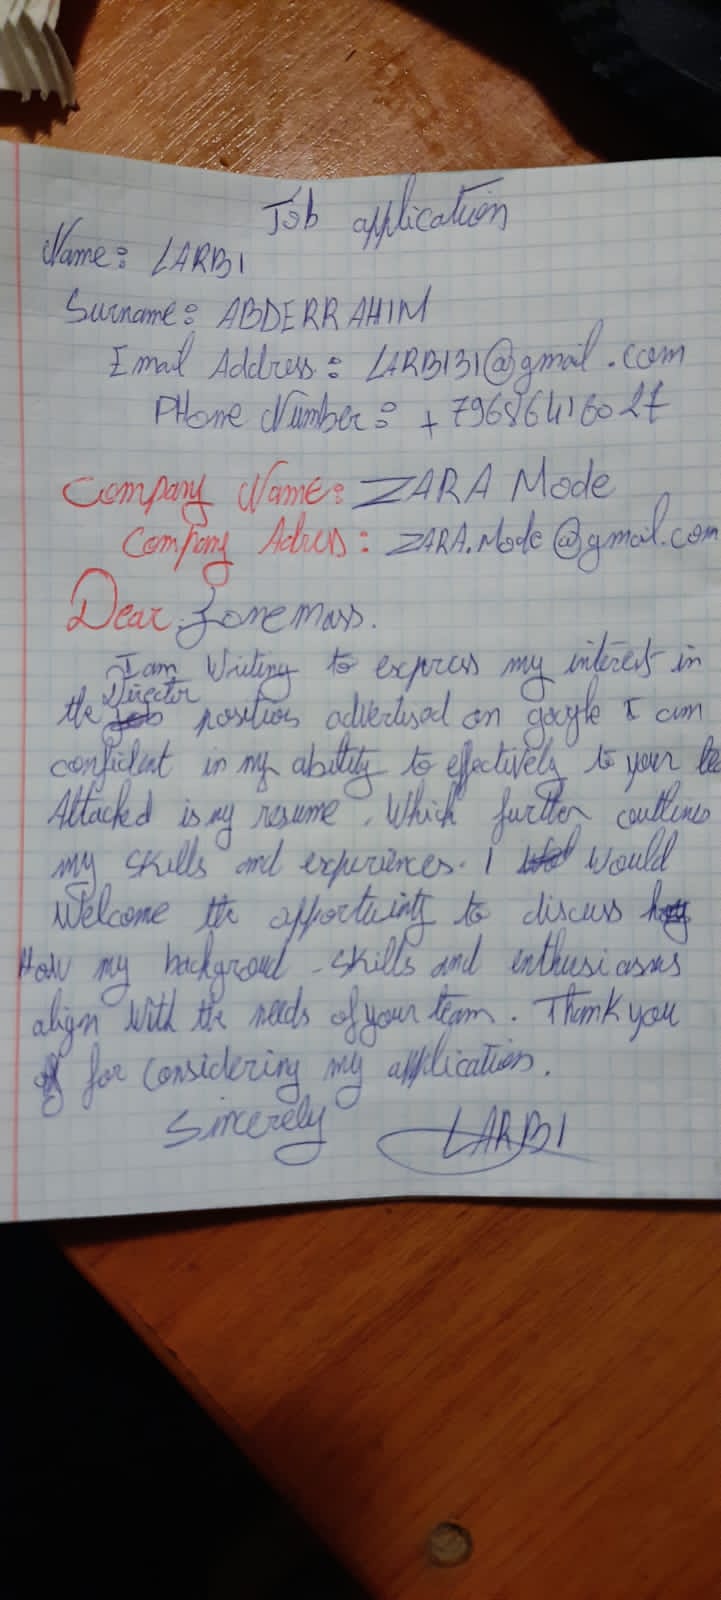 Job application
Name: LARBI
Surname: ABDERRAHIM
Email Address: LARBI31@gmail.com
PHone Number: +79686416027
Company Name: ZARA Mode
Company Adress: ZARA.Mode@gmail.com
Dear
I am Writing to express my interest in
the Director position advertised on google I am
confident in my ability to effectively to your
Attacked is my resume. Which further outlines
my skills and experiences. I would
Welcome the opportuinty to discuss
How my backgroud skills and enthusiasms
align with the needs of your team. Thank you
for considering my application.
Sincerely LARBI